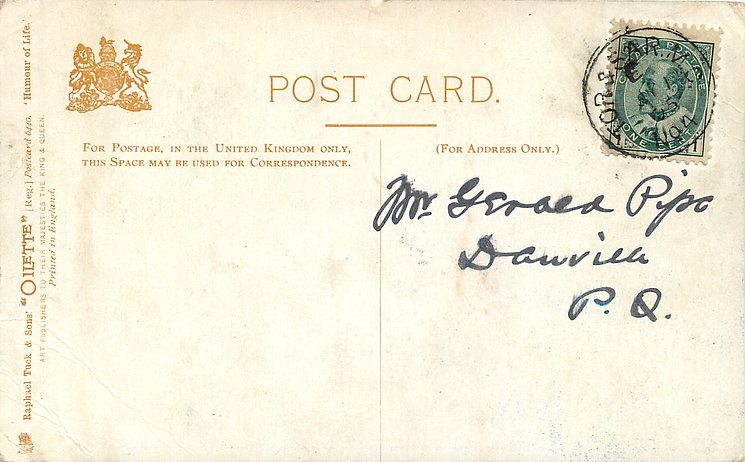 POST CARD.
FOR POSTAGE, IN THE UNITED KINGDOM ONLY,
THIS SPACE MAY BE USED FOR CORRESPONDENCE.
(FOR ADDRESS ONLY.)
Mr Gerald Pipo
Danville
P. Q.
ONE CENT
Raphael Tuck & Sons' "OILETTE" [Reg.] Postcard 6440. 'Humour of Life.'
ART PUBLISHERS TO THEIR MAJESTIES THE KING & QUEEN.
Printed in England.